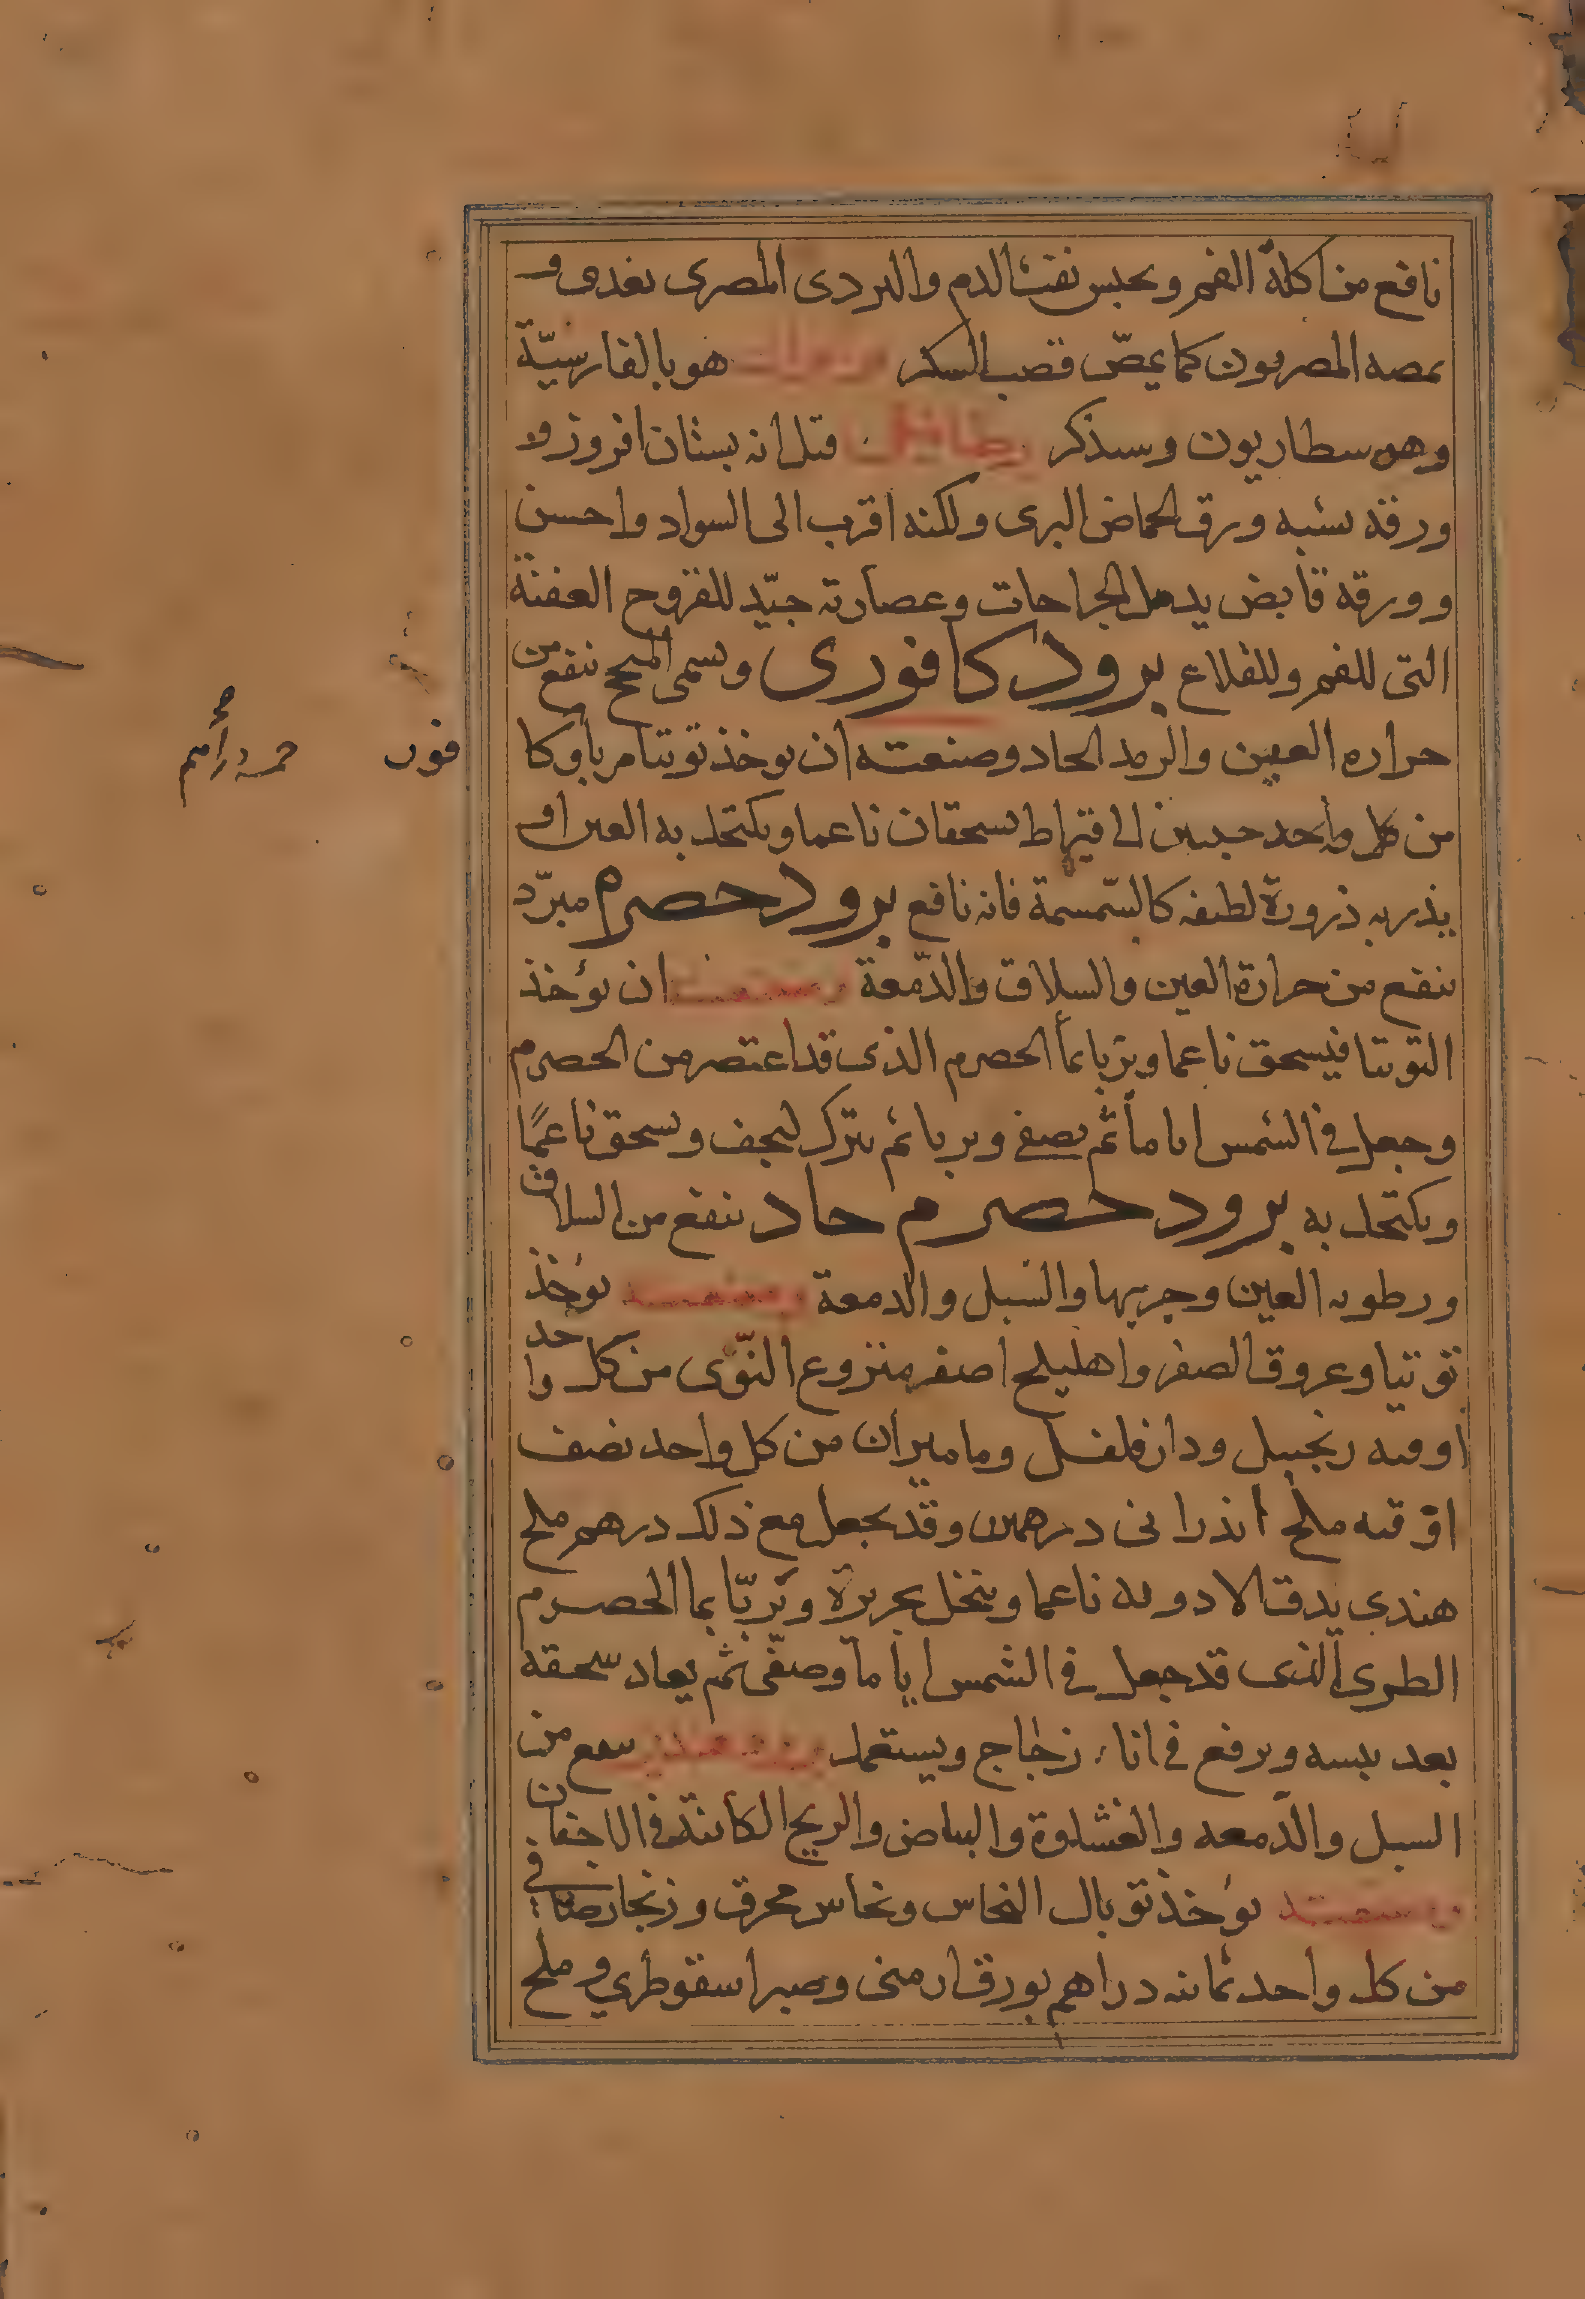 نافع من اكلة الفم ويحبس نفث الدم والبردى المصرى يغدى و
يمصه المصريون كما يمصّ قصب السكر هو بالفارسيّة
وهو سطاريون وسنذكر قيل انه بستان افروز ولا
ورقه يشبه ورق الحماض البرى ولكنه اقرب الى السواد واحسن
وورقه قابض يدمل الجراحات وعصارته جيّد للقروح العفنة
التى للفم وللقلاع برود كافورى ويسمى المبيح ينفع من
حراره العين والرمد الحاد وصنعته ان يوخذ توتيا مربا وكا
فور خمسة دراهم
من كل واحد حبتين الى قيراط يسحقان ناعما ويكتحل به العين او
يذر به ذرورة لطيفه كالسّمسمة فانه نافع برود حصرم مبرّد
ينفع من حرارة العين والسلاق والدّمعة وصنعته ان يؤخذ
التوتيا فيسحق ناعما ويربا بمأ الحصرم الذى قد اعتصر من الحصرم
وجعل فى الشمس اياماً ثم يصفى ويربا ثم يترك ليجف ويسحق ناعمًا
ويكتحل به برود حصرم حاد ينفع من السلاق
ورطوبه العين وجربها والسبل والدمعة وصنعته يؤخذ
توتيا وعروق الصفر واهليلج اصفر منزوع النّوى من كل واحد
اوقيه زنجبيل ودارفلفل وماميران من كل واحد نصف
اوقيه ملح اندرانى درهمين وقد يجعل مع ذلك درهم ملح
هندى يدق الادويه ناعما وينخل بحريرة ويربّا بما الحصرم
الطرى الذى قد جعل فى الشمس اياما وصفّى ثم يعاد سحقه
بعد يبسه ويرفع فى اناء زجاج ويستعمل ينفع من
السبل والدّمعه والغشاوة والبياض والريح الكائنة فى الاجفان
وصنعته يؤخذ توبال النحاس ونحاس محرق وزنجار صافى
من كل واحد ثمانيه دراهم بورق ارمنى وصبر اسقوطرى وملح